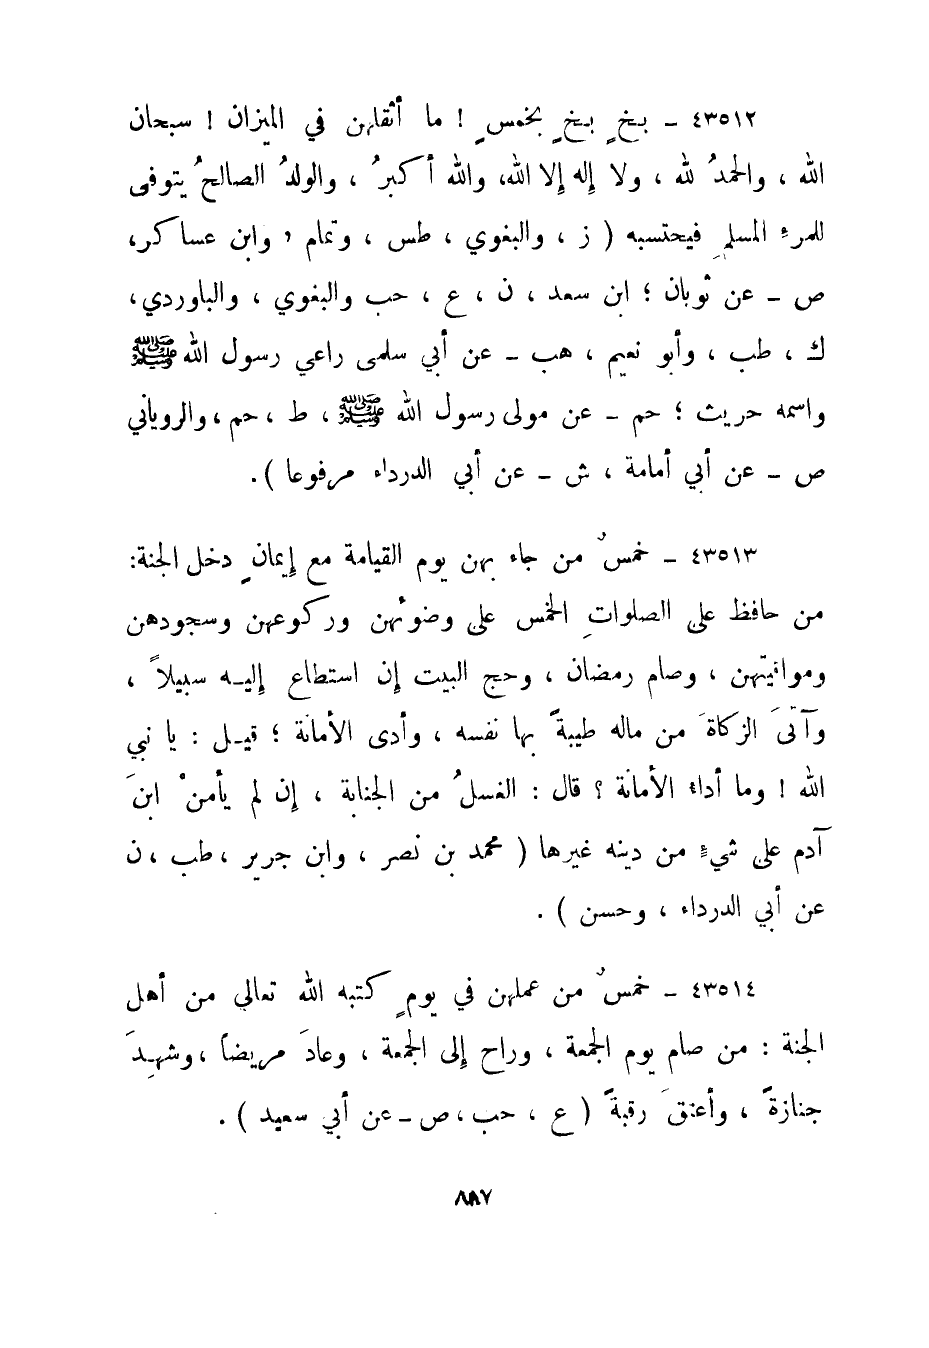 ٤٣٥١٢ ـ بخٍ بخٍ بخمسٍ ! ما أثقلهن في الميزان ! سبحان
الله ، والحمدُ لله ، ولا إله إلا الله، والله أكبرُ ، والولدُ الصالحُ يتوفى
للمرءِ المسلمِ فيحتسبه ( ز ، والبغوي ، طس ، وتمام ، وابن عساكر،
ص ـ عن ثوبان ؛ ابن سعد ، ن ، ع ، حب والبغوي ، والباوردي،
ك ، طب ، وأبو نعيم ، هب ـ عن أبي سلمى راعي رسول الله ﷺ
واسمه حريث ؛ حم ـ عن مولى رسول الله ﷺ ، ط ، حم ، والروياني
ص ـ عن أبي أمامة ، ش ـ عن أبي الدرداء مرفوعا ).
٤٣٥١٣ ـ خمسٌ من جاء بهن يوم القيامة مع إيمانٍ دخل الجنة:
من حافظ على الصلواتِ الخمس على وضوئهن وركوعهن وسجودهن
ومواقيتهن ، وصام رمضان ، وحج البيت إن استطاع إليـه سبيلاً ،
وآتىَ الزكاةَ من ماله طيبةً بها نفسه ، وأدى الأمانة ؛ قيـل : يا نبي
الله ! وما أداء الأمانة ؟ قال : الغسلُ من الجنابة ، إن لم يأمنْ ابنَ
آدم على شيءٍ من دينه غيرها ( محمد بن نصر ، وابن جرير ، طب ، ن
عن أبي الدرداء ، وحسن ) .
٤٣٥١٤ ـ خمسٌ من عملهن في يومٍ كتبه الله تعالي من أهل
الجنة : من صام يوم الجمعة ، وراح إلى الجمعة ، وعادَ مريضاً ، وشهِـدَ
جنازةً ، وأعتقَ رقبةً ( ع ، حب ، ص ـ عن أبي سعيد ) .
٨٨٧